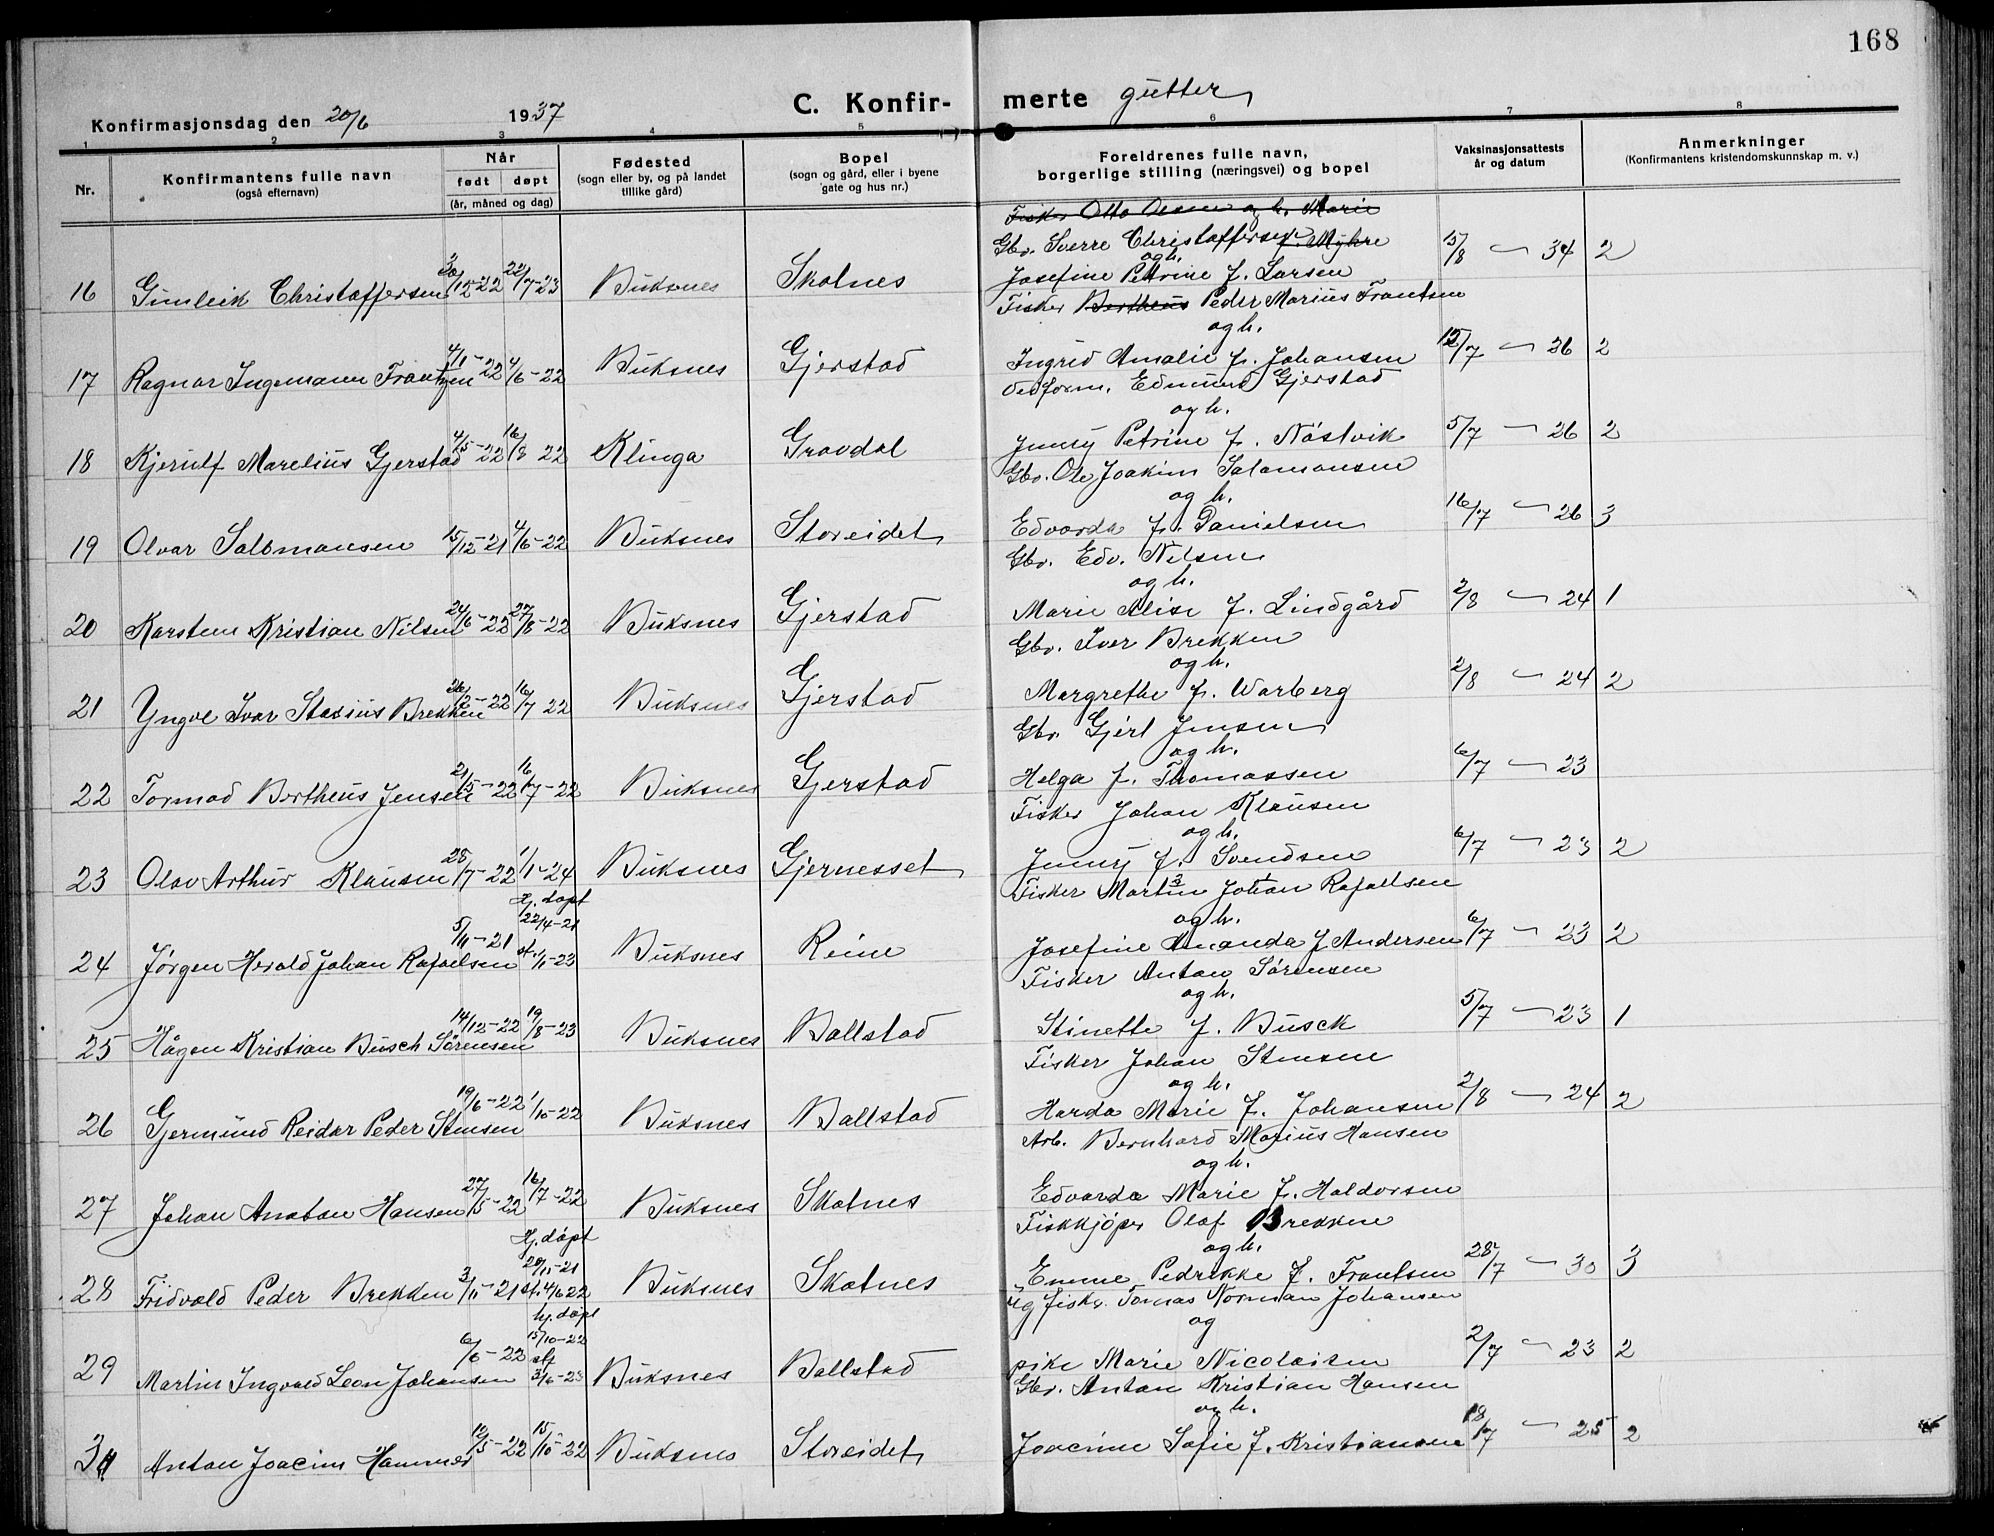 168
C. Konfir- merte gutter
Konfirmasjonsdag den 20/6 1937
1 2 3 4 5 6 7 8
Nr.
Konfirmantens fulle navn
(også efternavn)
Når
født døpt
(år, måned og dag)
Fødested
(sogn eller by, og på landet
tillike gård)
Bopel
(sogn og gård, eller i byene
gate og hus nr.)
Foreldrenes fulle navn,
borgerlige stilling (næringsvei) og bopel
Vaksinasjonsattests
år og datum
Anmerkninger
(Konfirmantens kristendomskunnskap m. v.)
Fisker Otto Olsen og h. Marie
f. Myhre
Gbr. Sverre Christoffersen
og h.
16 Gunleik Christoffersen 30/12-22 22/7-23 Buksnes Skotnes Josefine Petrine f. Larsen 15/8 - 34 2
Fisker Bertheus Peder Marius Frantsen
og h.
17 Ragnar Ingemann Frantzen 4/1-22 4/6-22 Buksnes Gjerstad Ingrid Amalie f. Johansen 12/7 - 26 2
Oedform. Edmund Gjerstad
og h.
18 Kjerulf Marelius Gjerstad 4/5-22 16/8 22 Klinga Gravdal Jenny Petrine f. Nöstvik 5/7 - 26 2
Gbr. Ole Joakim Salomonsen
og h.
19 Olvar Salomonsen 15/12-21 4/6-22 Buksnes Storeidet Edvarda f. Danielsen 16/7 - 26 3
Gbr. Edv. Nilsen
og h.
20 Karsten Kristian Nilsen 24/6-22 27/8-22 Buksnes Gjerstad Marie Elise f. Lindgård 2/8 - 24 1
Gbr. Iver Brekken
og h.
21 Yngve Ivar Stavius Brekken 26/2-22 16/7 22 Buksnes Gjerstad Margrethe f. Warberg 2/8 - 24 2
Gbr. Gjert Jensen
og h.
22 Tormod Bertheus Jensen 21/5-22 16/7-22 Buksnes Gjerstad Helga f. Thomassen 6/7 - 23
Fisker Johan Klausen
og h.
23 Olav Arthur Klausen 28/7-22 1/1-24 Buksnes Gjernesset Jenny f. Svendsen 6/7 - 23 2
Fisker Martin Johan Rafaelsen
og h.
Hj. döpt
22/4-21
24 Jörgen Herold Johan Rafaelsen 5/11-21 st. 1/11-23 Buksnes Reine Josefine Amanda f Andersen 6/7 - 23 2
Fisker Anton Sörensen
og h.
25 Hågen Kristian Busch Sörensen 14/12-22 19/8-23 Buksnes Ballstad Stinette f. Busck 5/7 - 23 1
Fisker Johan Stensen
og h.
26 Germund Reidar Peder Stensen 19/6-22 1/10-22 Buksnes Ballstad Harda Marie f. Johansen 2/8 - 24 2
Arb. Bernhard Marius Hansen
og h.
27 Johan Anaton Hansen 27/5-22 16/7-22 Buksnes Skotnes Edvarda Marie f. Haldorsen
Fiskkjöper Olaf Brekken
og h.
Hj. döpt
20/11-21
28 Fridvald Peder Brekken 3/11-21 st. 4/6 22 Buksnes Skotnes Emme Pedrikke f. Frantsen 28/7 - 30 3
ug fisker Tomas Norman Johansen
og
hj. döpt
15/10-22
stf
29 Martin Ingvald Leon Johansen 6/6-22 3/6-23 Buksnes Ballstad pike Marie Nicolaisen 2/7 - 23 2
Gbr. Anton Kristian Hansen
og h.
30 Anton Joacim Hammer 12/5-22 15/10-22 Buksnes Storeidet Joacine Sofie f. Kristiansen 18/7 - 25 2